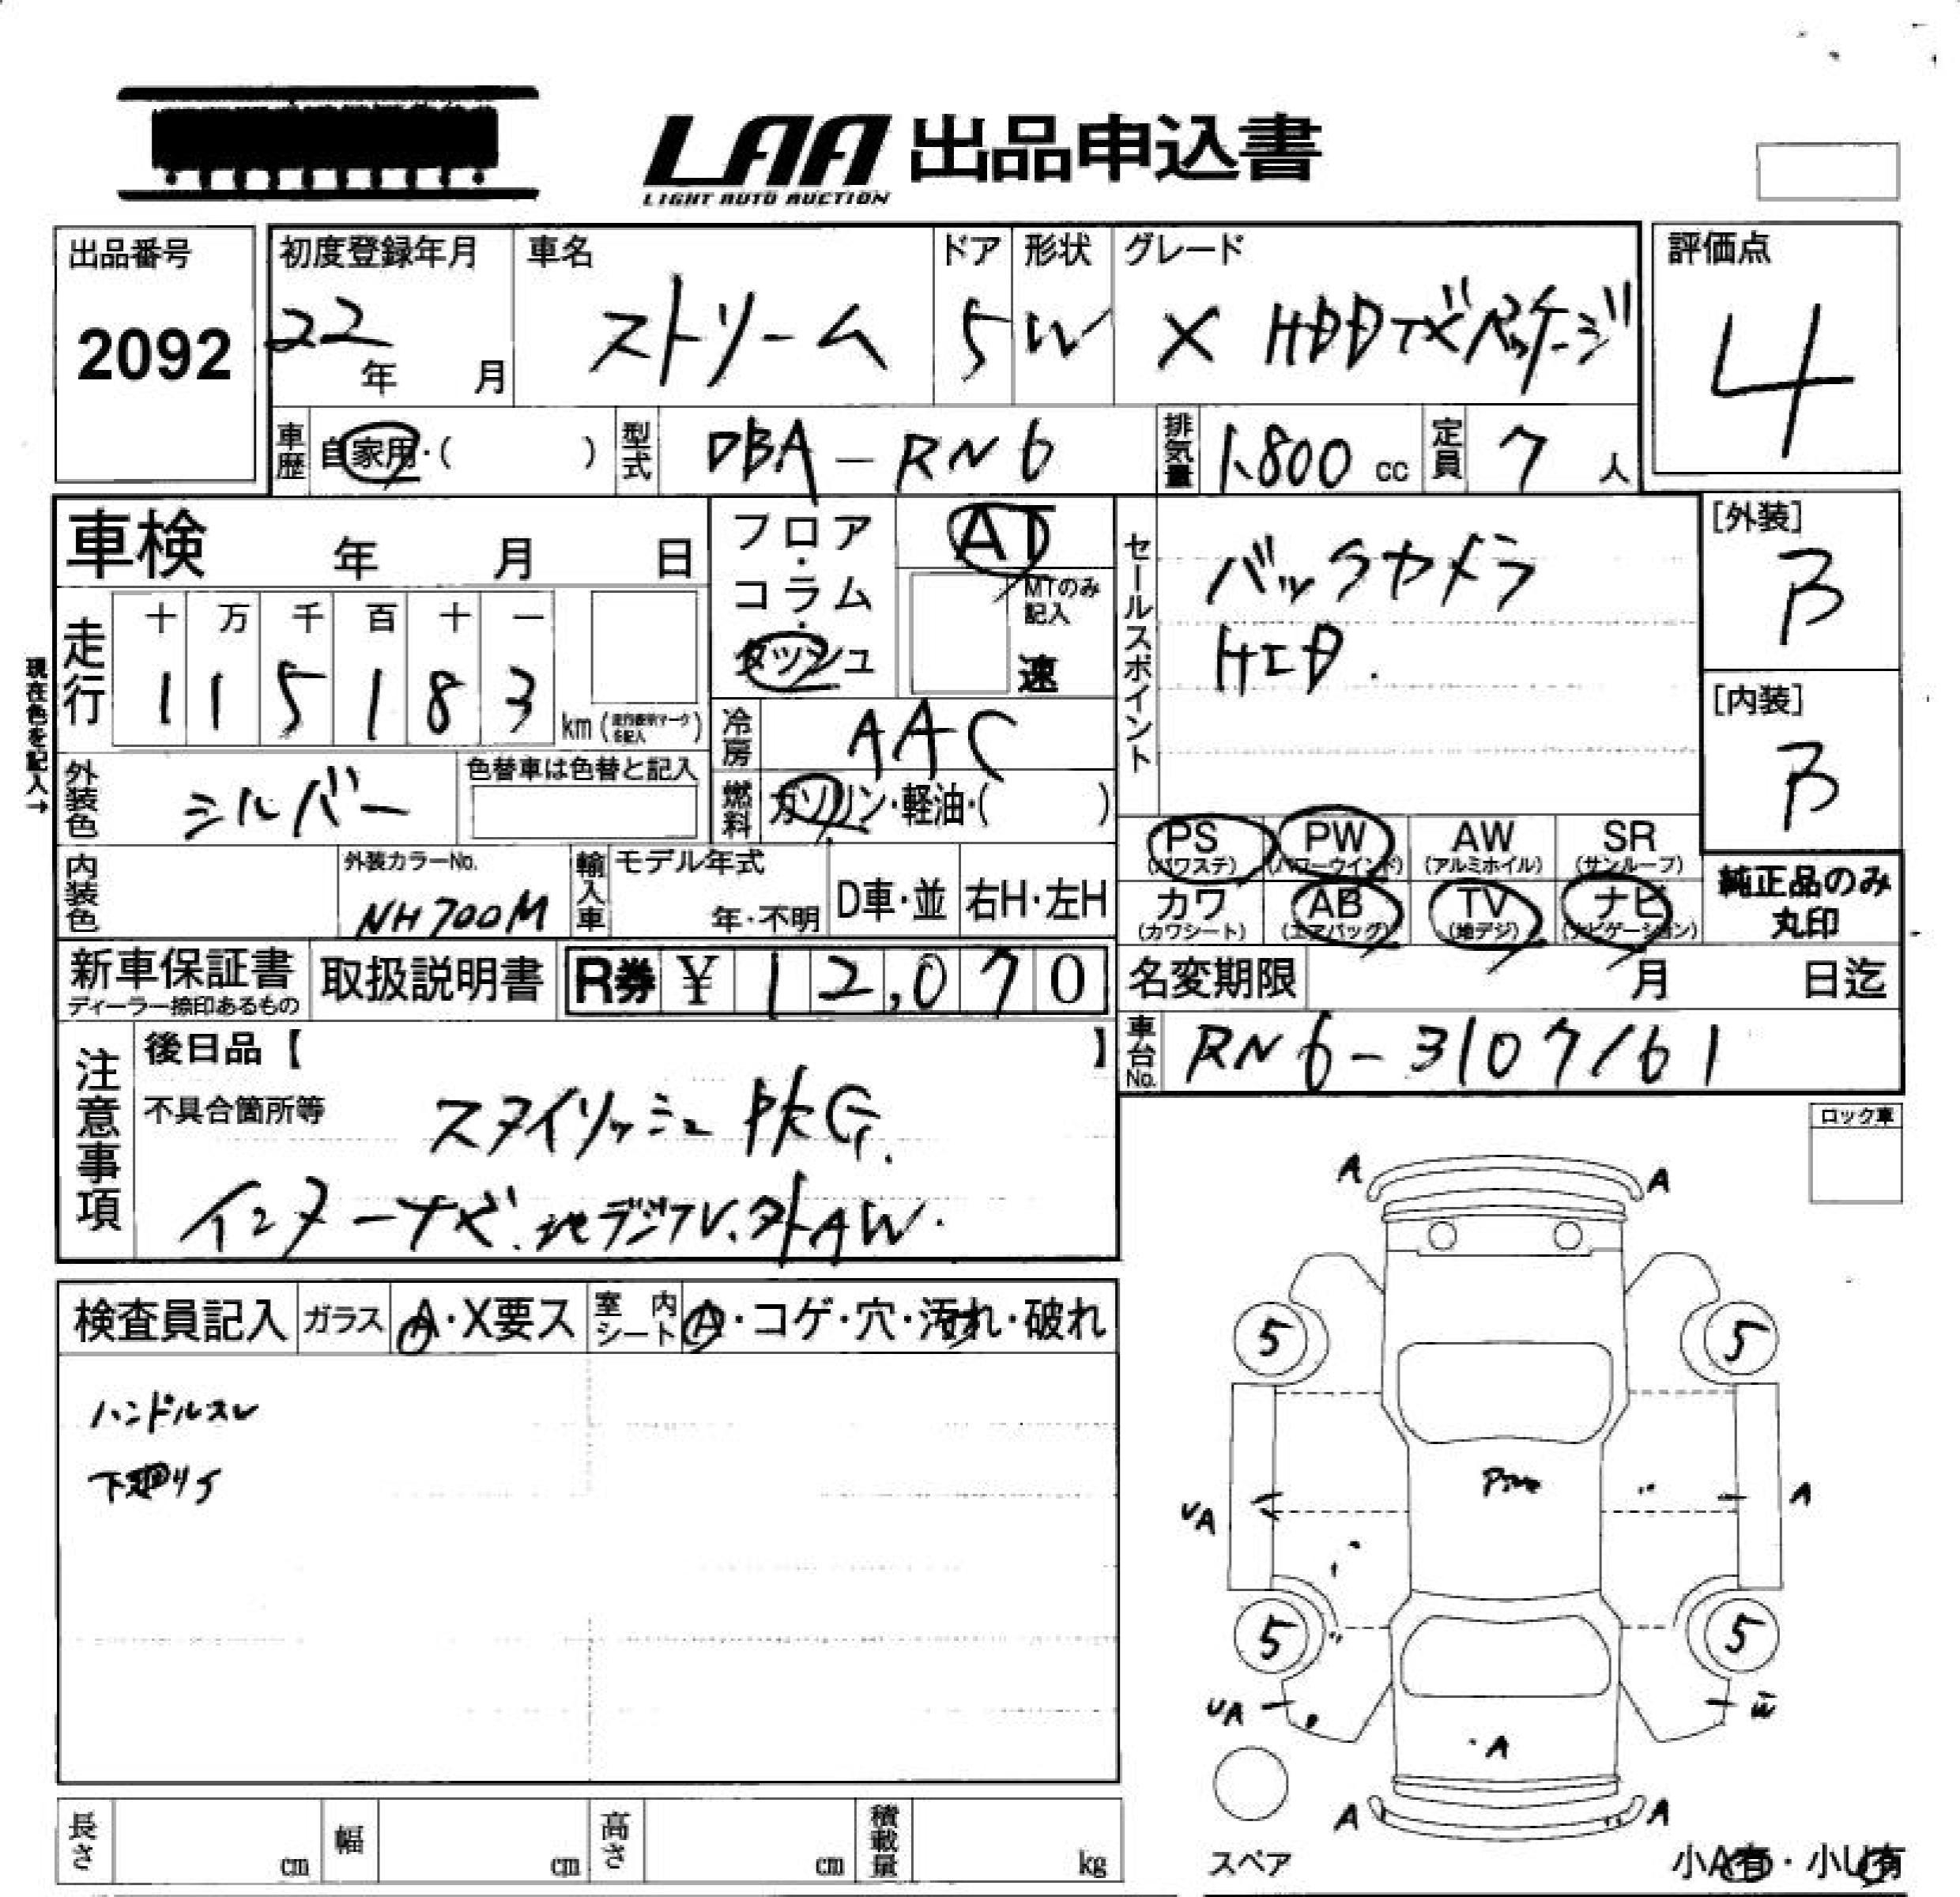 LAA 出品申込書
LIGHT AUTO AUCTION
出品番号
2092
初度登録年月
22年 月
車名
ストリーム
ドア
5
形状
W
グレード
X HDDナビパッケージ
評価点
4
車歴 自家用・( )
型式 DBA-RN6
排気量 1,800 cc
定員 7 人
車検 年 月 日
フロア・コラム・ダッシュ
AT
MTのみ記入
速
セールスポイント
バックカメラ
HID.
[外装]
B
[内装]
B
現在色を記入→
走行
十 万 千 百 十 一
1 1 5 1 8 3 km
冷房 AAC
外装色 シルバー
色替車は色替と記入
燃料 ガソリン・軽油・( )
PS (パワステ)
PW (パワーウインド)
AW (アルミホイル)
SR (サンルーフ)
カワ (カワシート)
AB (エアバッグ)
TV (地デジ)
ナビ (ナビゲーション)
純正品のみ
丸印
内装色
外装カラーNo.
NH700M
輸入車
モデル年式
年・不明
D車・並
右H・左H
新車保証書
ディーラー捺印あるもの
取扱説明書
R券 ¥ 12,070
名変期限 月 日迄
車台No. RN6-3107161
注意事項
後日品【 】
不具合箇所等
スタイリッシュPKG.
インターナビ.地デジTV.外AW.
ロック車
検査員記入
ガラス A・X要ス
室内シート A・コゲ・穴・汚れ・破れ
ハンドルスレ
A A
5 5
UA A
5 5
UA
A
A A
長さ cm
幅 cm
高さ cm
積載量 kg
スペア
小A有・小U有